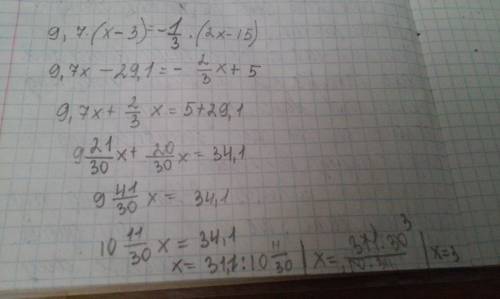 9,7·(x-3)=-1/3·(2x-15)
9,7x-29,1=-2/3x+5
9,7x+2/3x=5+29,1
9 21/30x+20/30x=34,1
9 41/30x=34,1
10 11/30x=34,1
x=31,1:10 11/30 | x= | x=3